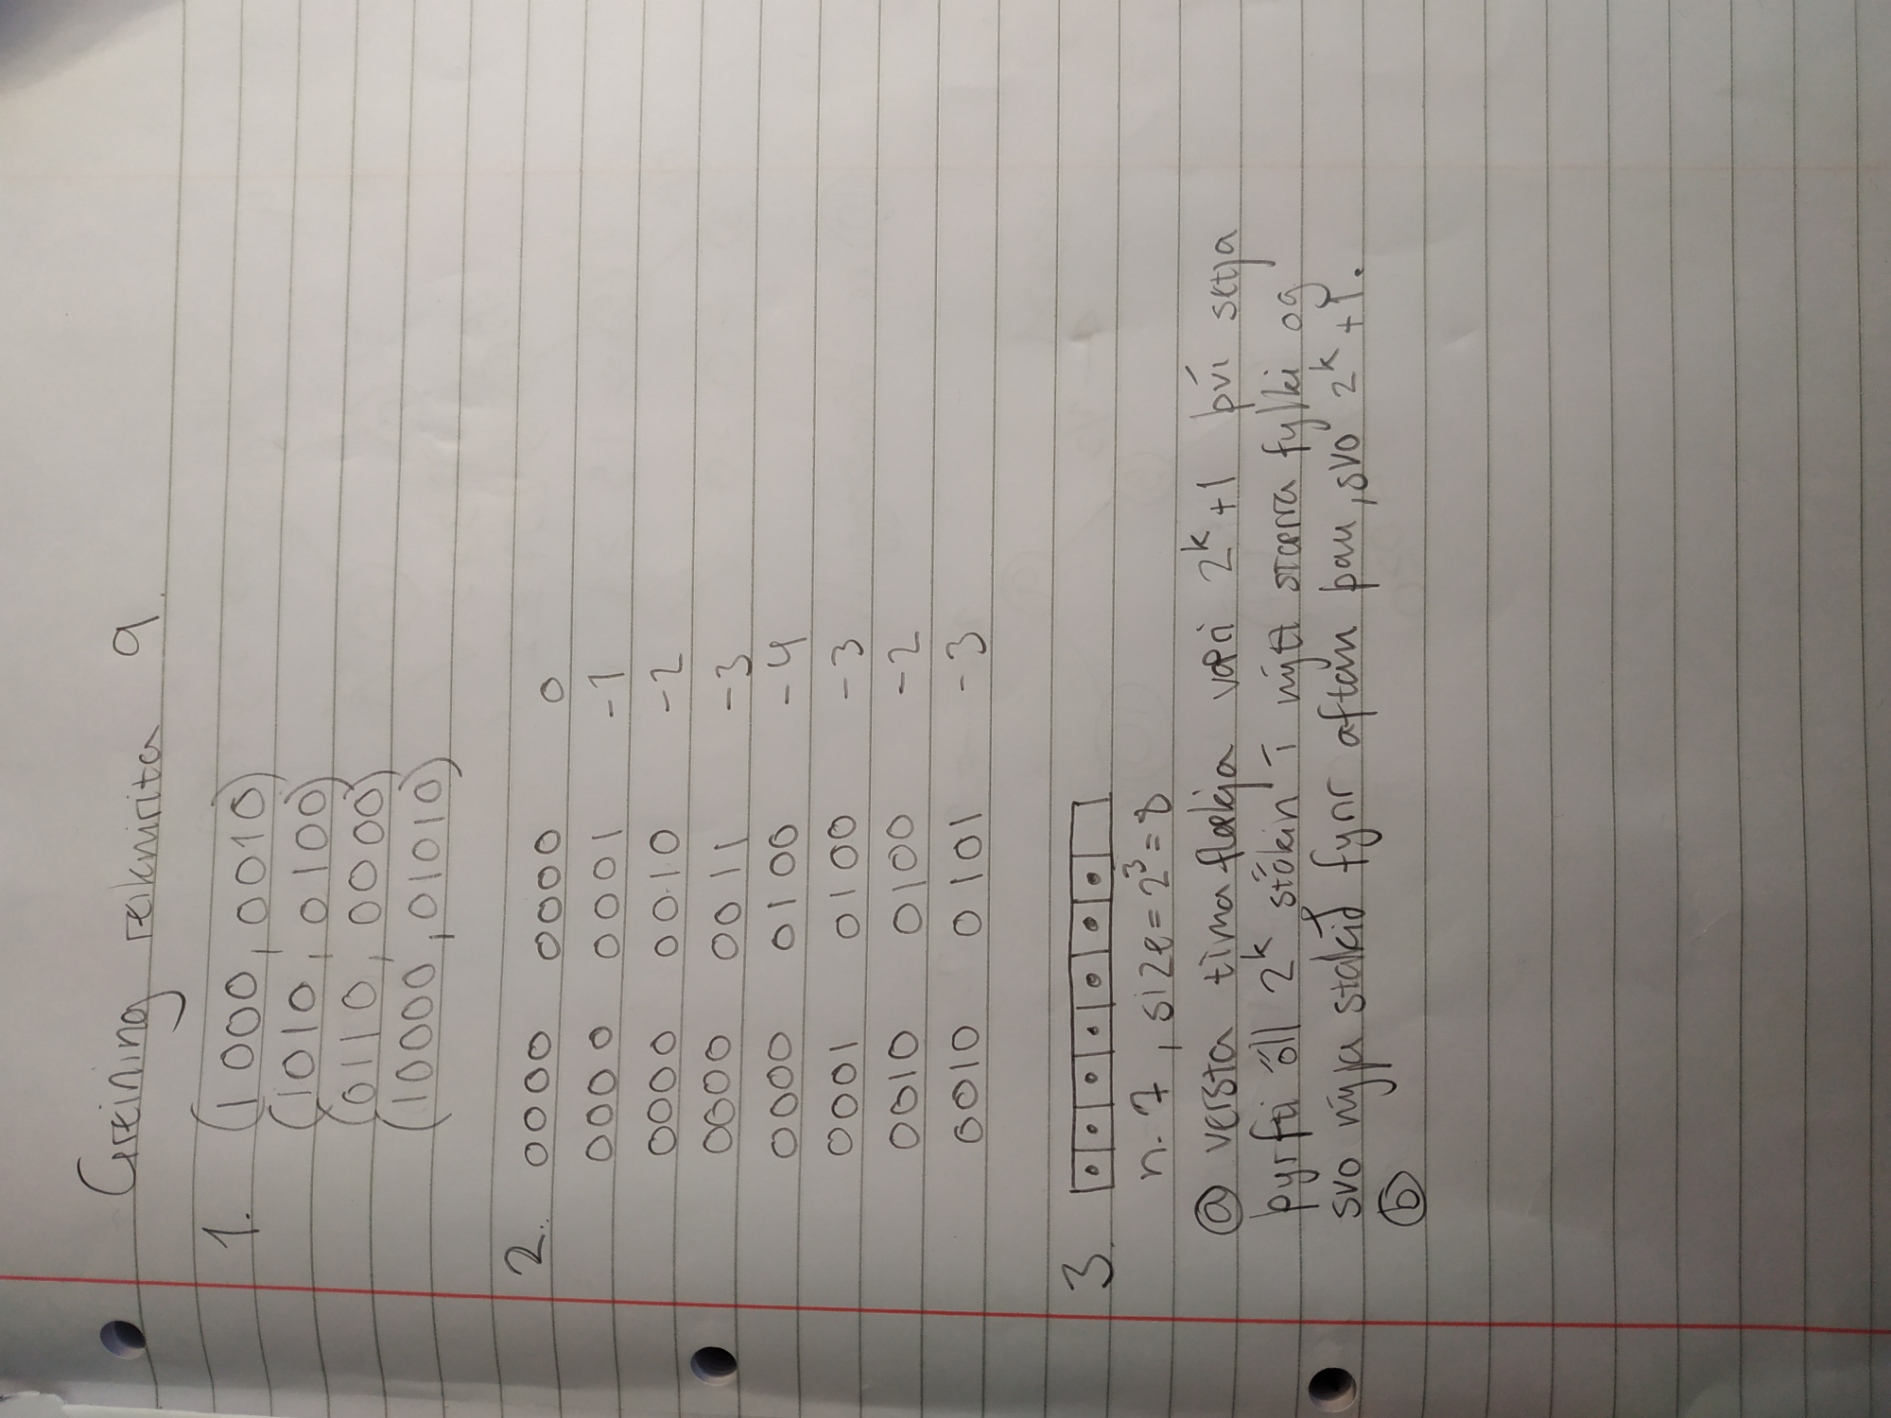 Greining reiknirita 9.
1. (1000, 0010)
(1010, 0100)
(0110, 0000)
(10000, 01010)
2. 0000 0000 0
0000 0001 -1
0000 0010 -2
0000 0011 -3
0000 0100 -4
0001 0100 -3
0010 0100 -2
0010 0101 -3
3.
n. 7, size = 2³ = 8
ⓐ versta tímaflækja væri 2ᵏ + 1 því setja
þyrfti öll 2ᵏ stökin í nýtt stærra fylki og
svo nýja stakið fyrir aftan þau, svo 2ᵏ + 1.
ⓑ